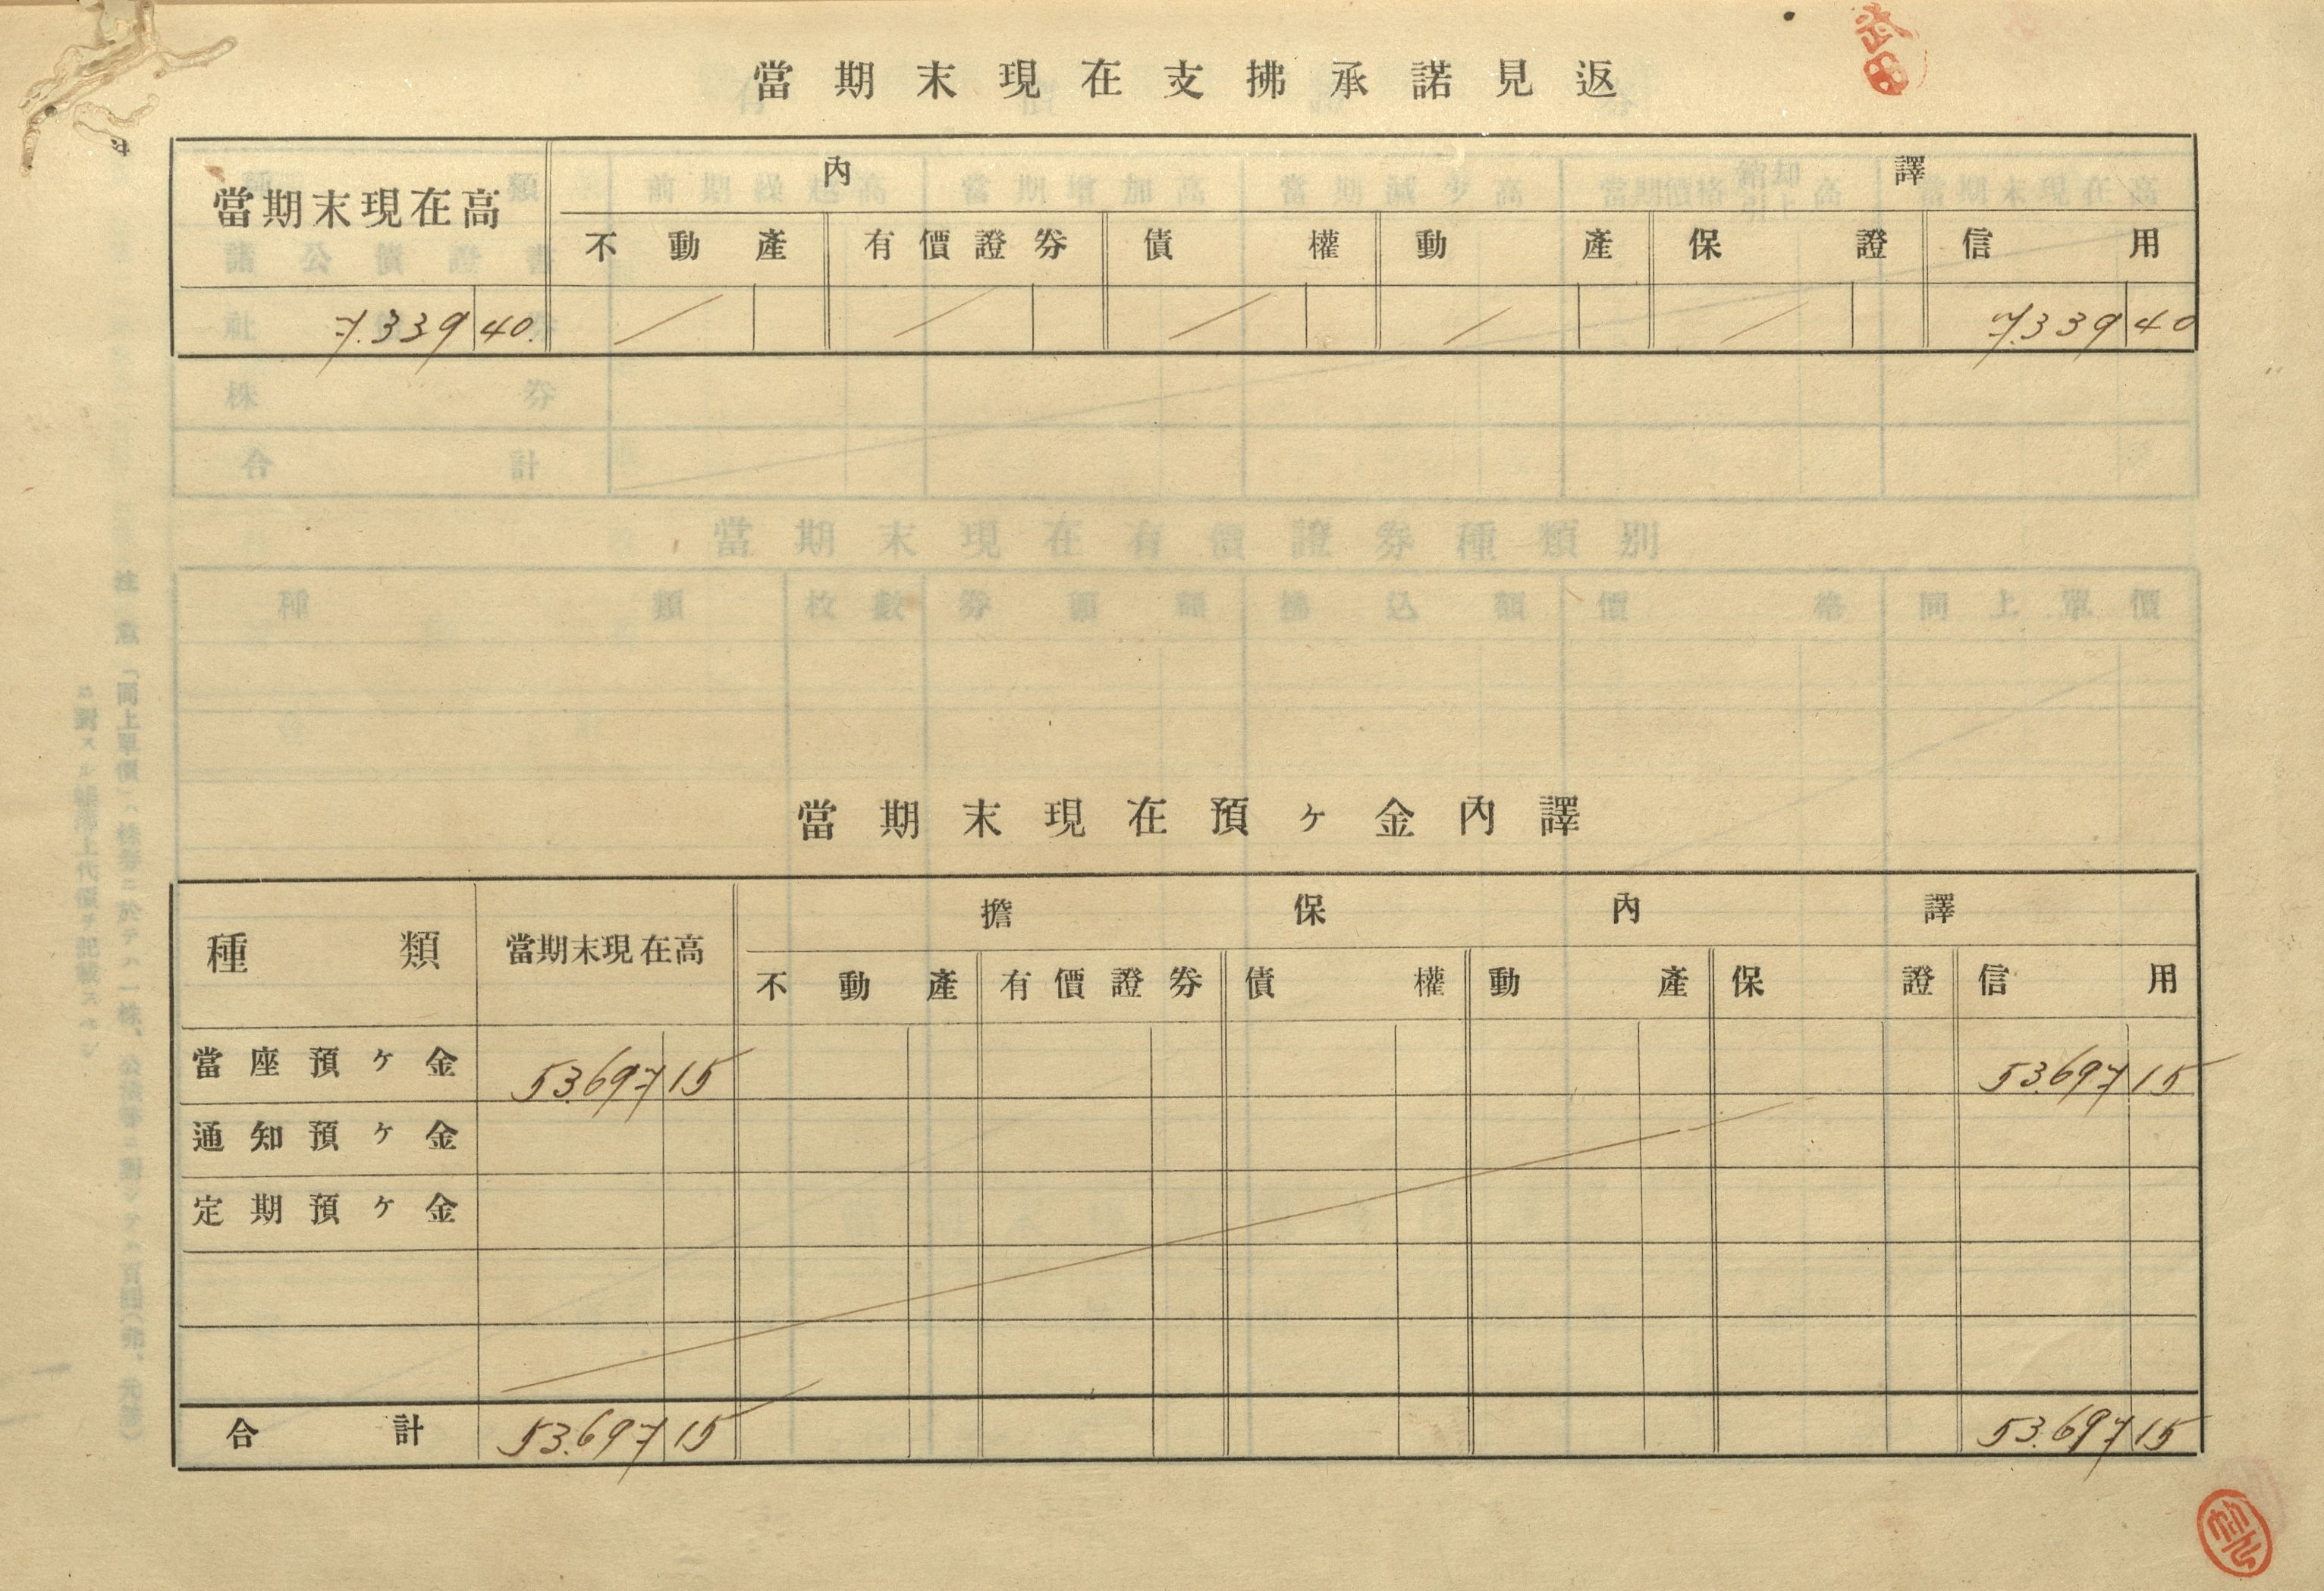 當期末現在支拂承諾見返
武田
當期末現在高 內譯
不動產 有價證券 債權 動產 保證 信用
7.339 40. 7.339 40
當期末現在預ヶ金內譯
種類 當期末現在高 擔保內譯
不動產 有價證券 債權 動產 保證 信用
當座預ヶ金 53.697 15 53.697 15
通知預ヶ金
定期預ヶ金
合計 53.697 15 53.697 15